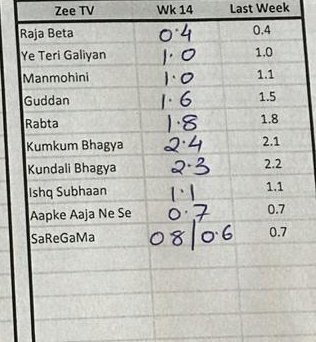 Zee TV Wk 14 Last Week
Raja Beta 0.4 0.4
Ye Teri Galiyan 1.0 1.0
Manmohini 1.0 1.1
Guddan 1.6 1.5
Rabta 1.8 1.8
Kumkum Bhagya 2.4 2.1
Kundali Bhagya 2.3 2.2
Ishq Subhaan 1.1 1.1
Aapke Aaja Ne Se 0.7 0.7
SaReGaMa 0 8 | 0.6 0.7